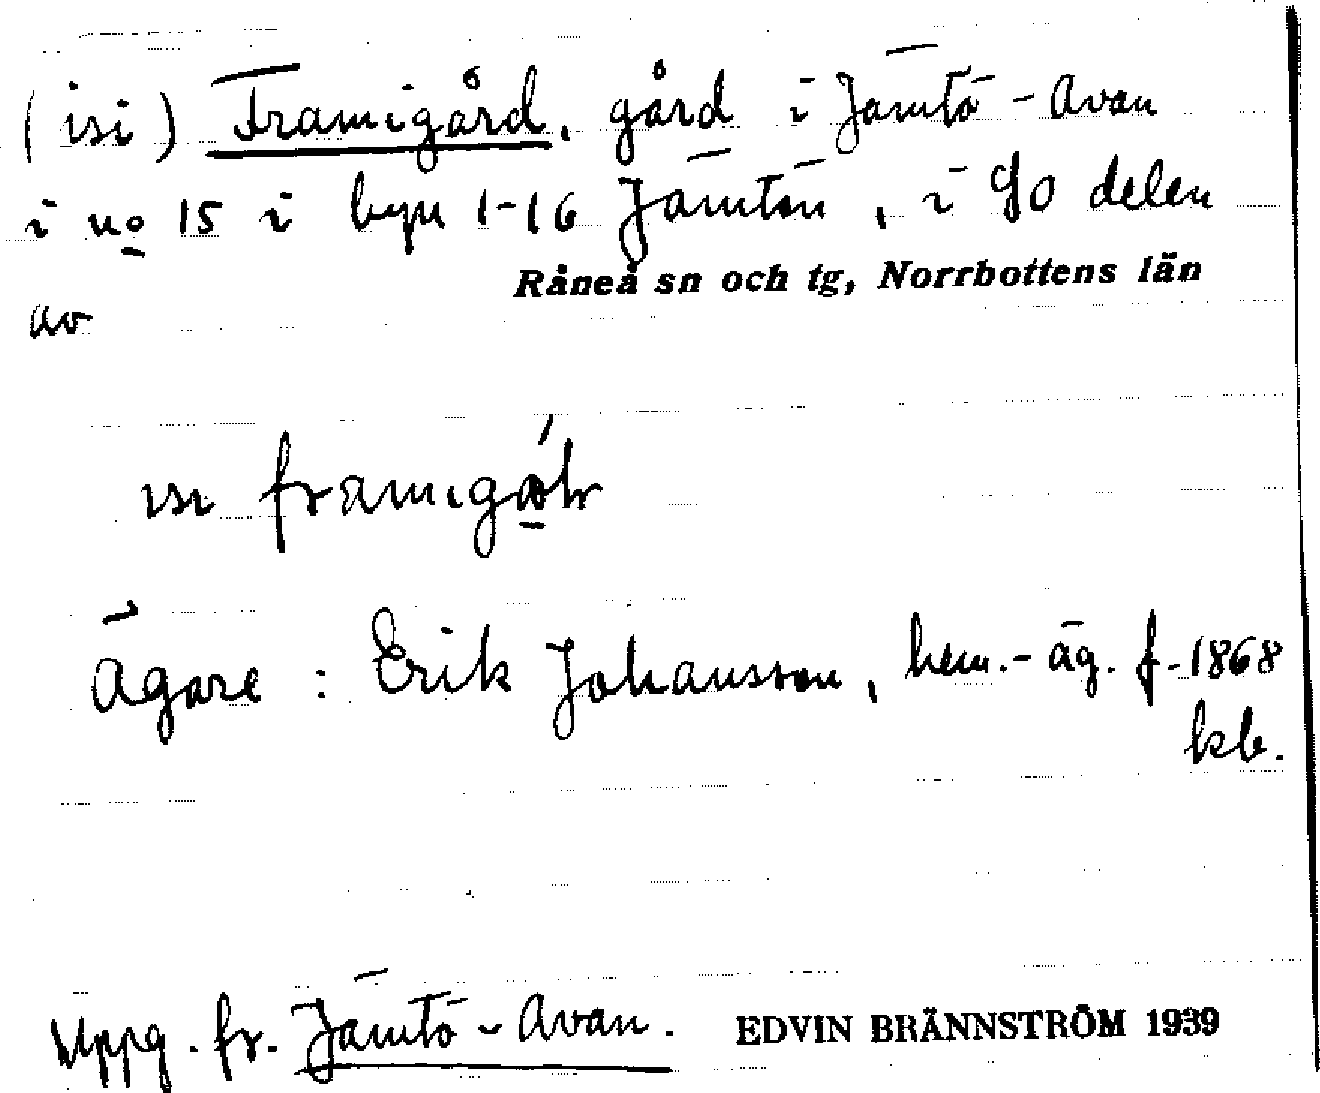 (isi) Framigård, gård i Jämtö-Avan
i no 15 i byn 1-16 Jämtön, i SO delen
av Råneå sn och tg, Norrbottens län
isi framigå̱r
Ägare: Erik Johansson, hem.-äg. f. 1868
kb.
Uppg. fr. Jämtö-Avan. EDVIN BRÄNNSTRÖM 1939